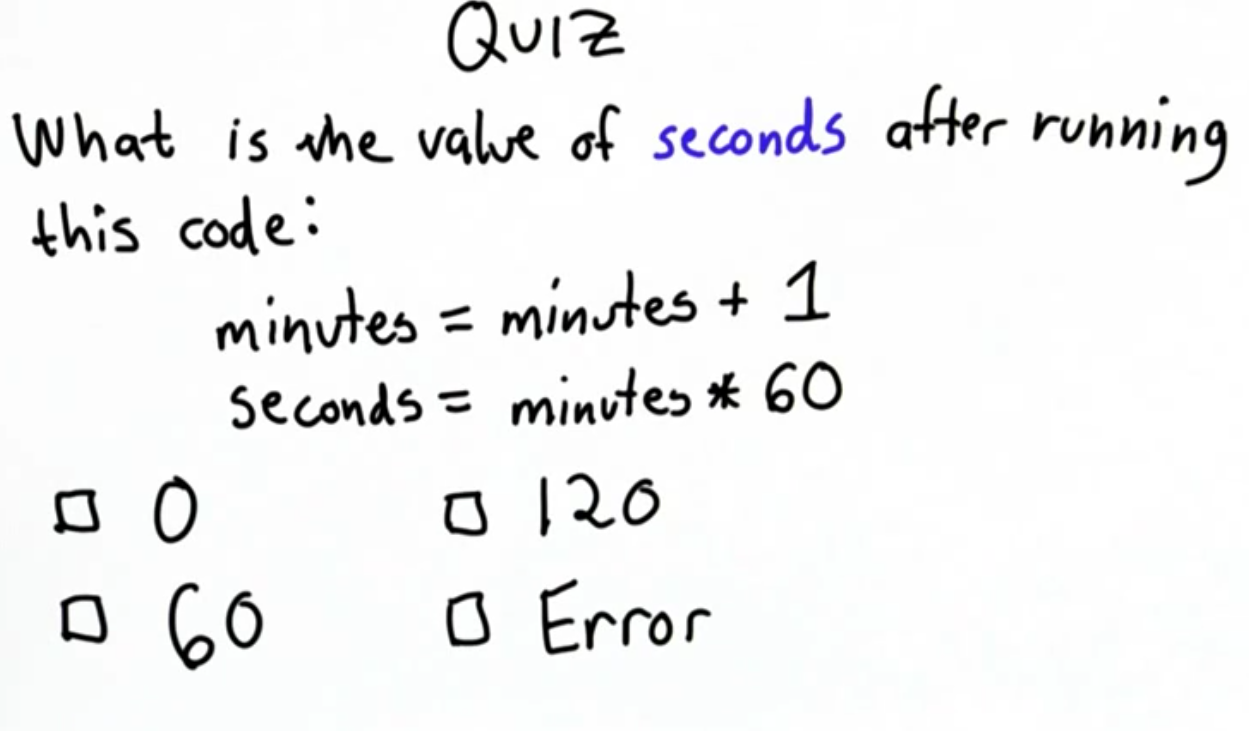 QUIZ
What is the value of seconds after running
this code:
minutes = minutes + 1
seconds = minutes * 60
0 120
60 Error